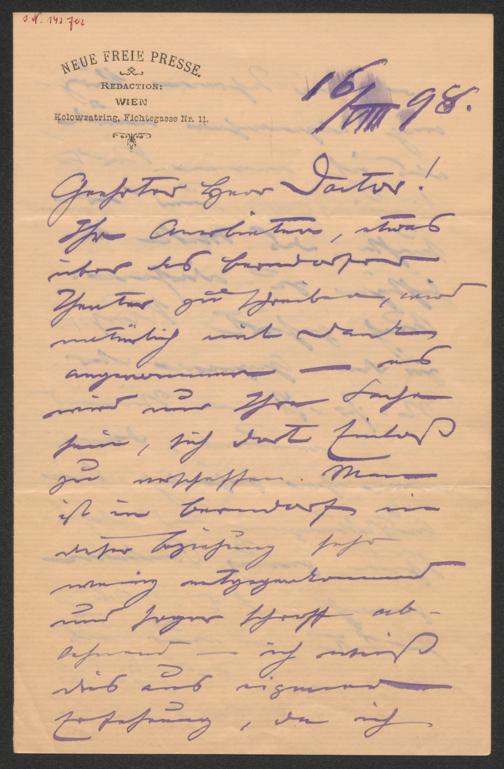 I.N. 142.702
NEUE FREIE PRESSE.
REDACTION:
WIEN
Kolowratring, Fichtegasse Nr. 11.
16/VIII 98.
Geehrter Herr Doctor!
Ihr Anerbieten, etwas
über das Berndorfer
Theater zu schreiben, wird
natürlich mit Dank
angenommen — es
wird nur Ihre Sache
sein, sich dort Einlaß
zu verschaffen. Man
ist in Berndorf in
dieser Beziehung sehr
wenig entgegenkommend
und sogar schroff ab-
lehnend — ich weiß
dies aus eigener
Erfahrung, da ich